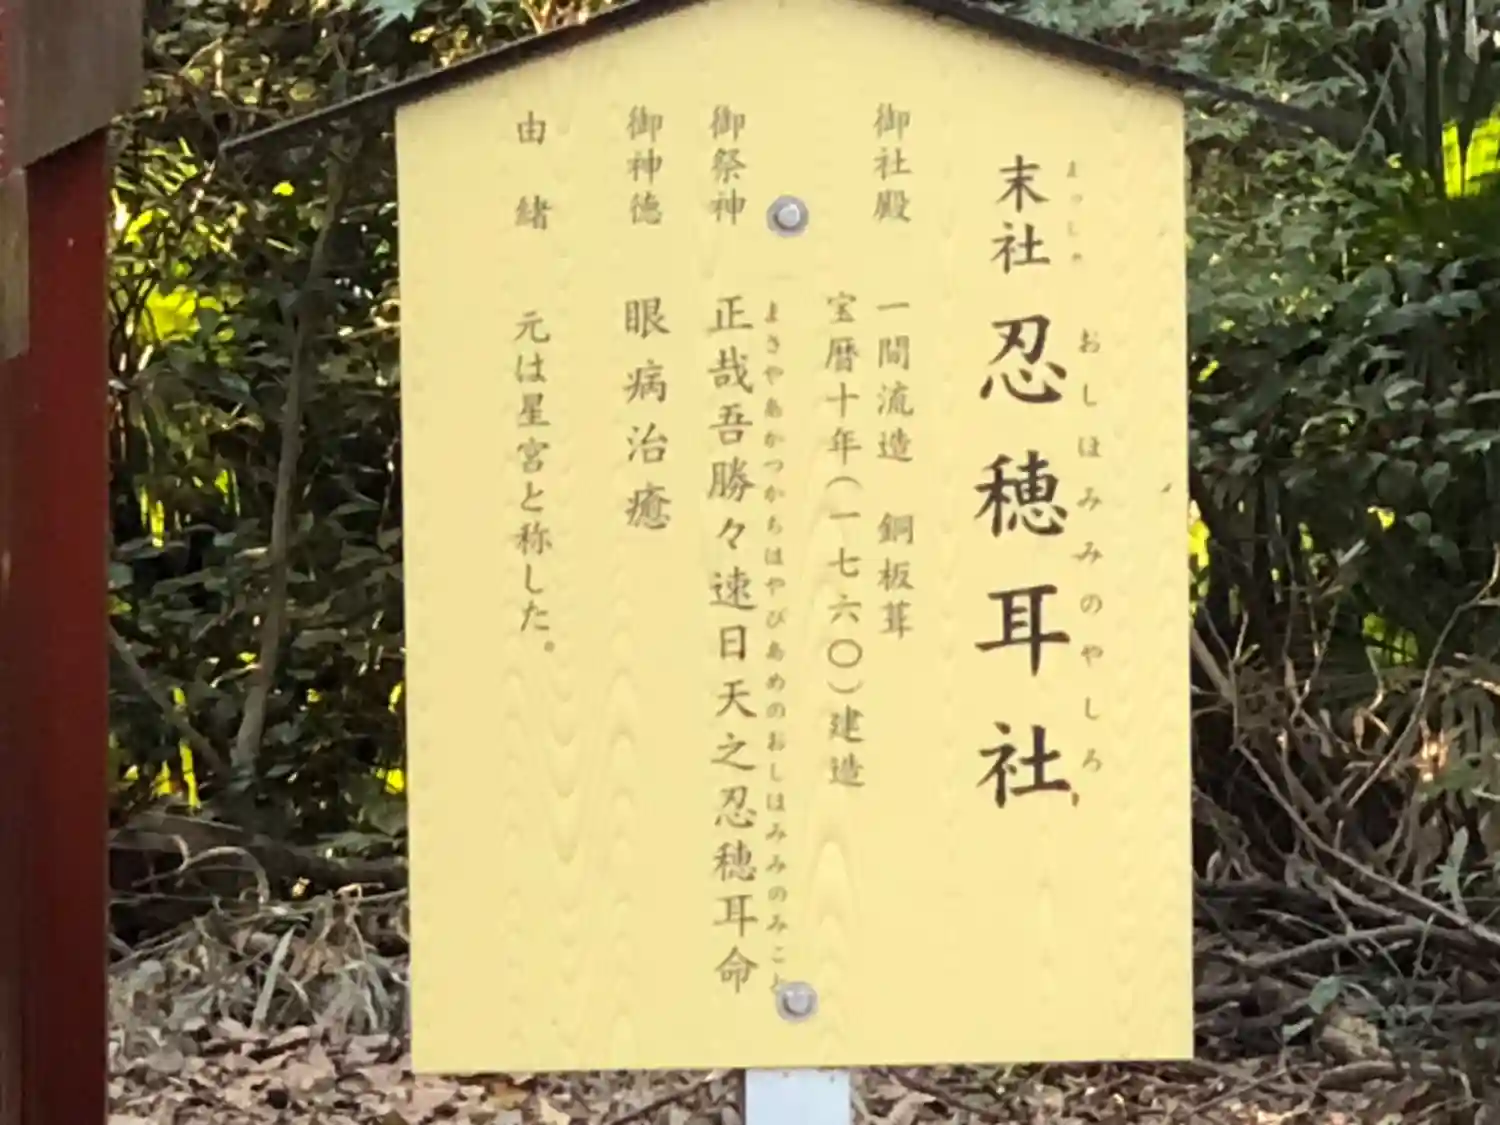 まっしゃ
末社
おしほみみのやしろ
忍穂耳社
御社殿 一間流造 銅板葺
宝暦十年(一七六〇)建造
よさやあかつかちはやびあめのおしほみみのみこと
御祭神 正哉吾勝々速日天之忍穂耳命
御神徳 眼病治癒
由緒 元は星宮と称した。